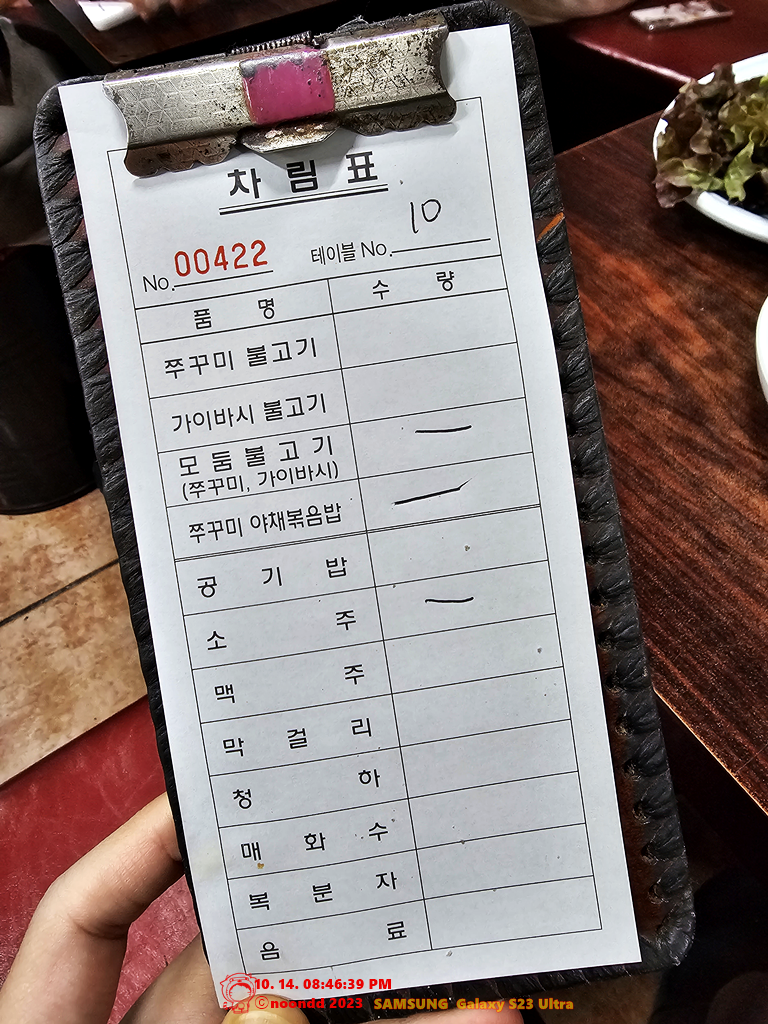 차림표
No. 00422 테이블 No. 10
품명 수량
쭈꾸미 불고기
가이바시 불고기
모둠불고기 一
(쭈꾸미, 가이바시)
쭈꾸미 야채볶음밥 一
공기밥
소주 一
맥주
막걸리
청하
매화수
복분자
음료
10. 14. 08:46:39 PM
©noondd 2023 SAMSUNG Galaxy S23 Ultra